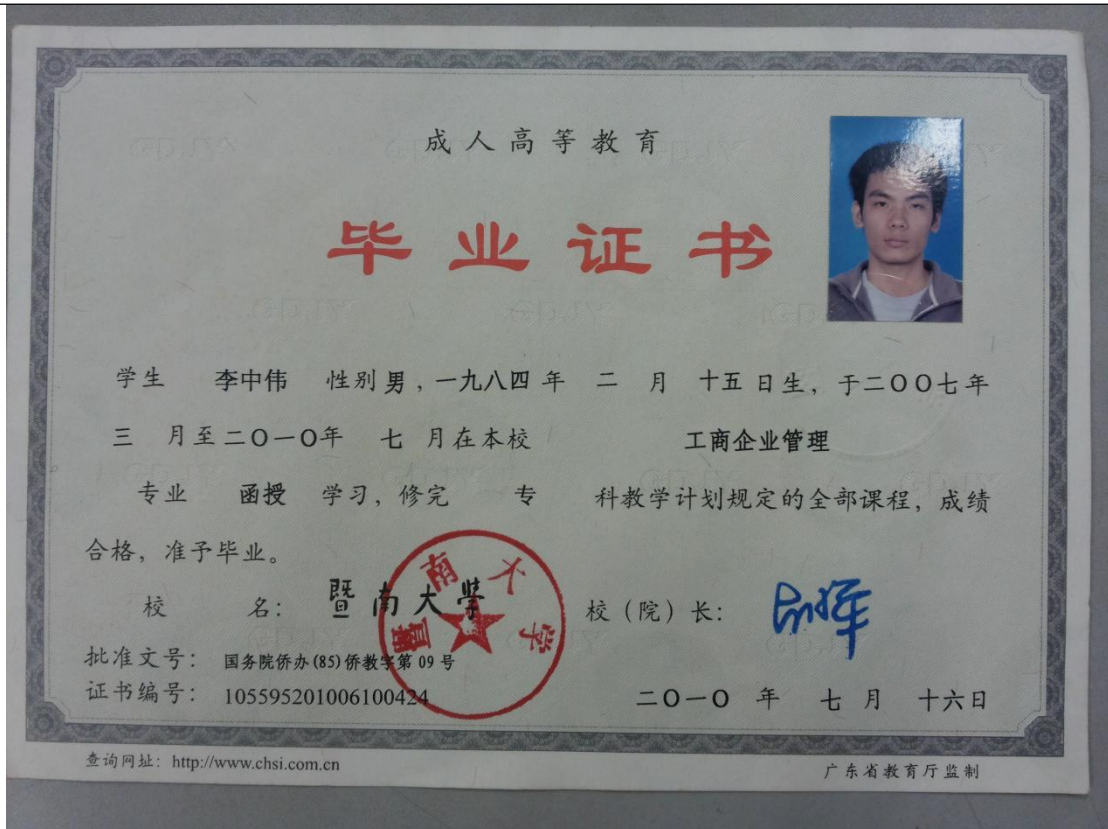 成人高等教育
毕业证书
学生 李中伟 性别 男，一九八四 年 二 月 十五 日生，于二〇〇七年
三 月至二〇一〇年 七 月在本校 工商企业管理
专业 函授 学习，修完 专 科教学计划规定的全部课程，成绩
合格，准予毕业。
校 名： 暨南大學 校（院）长：
暨南大学
批准文号： 国务院侨办(85)侨教字第 09 号
证书编号： 105595201006100424 二〇一〇 年 七 月 十六日
查询网址：http://www.chsi.com.cn 广东省教育厅监制